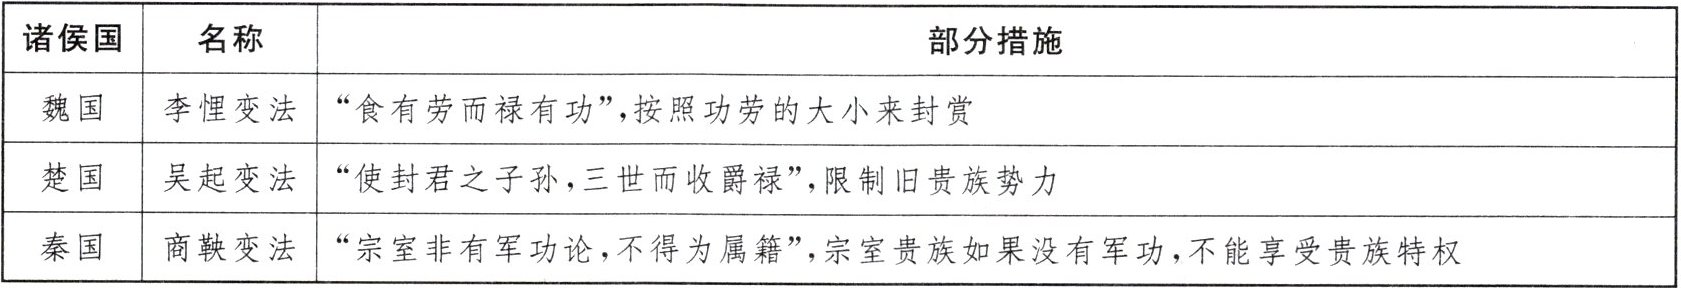 诸侯国 名称 部分措施
魏国 李悝变法 “食有劳而禄有功”,按照功劳的大小来封赏
楚国 吴起变法 “使封君之子孙,三世而收爵禄”,限制旧贵族势力
秦国 商鞅变法 “宗室非有军功论,不得为属籍”,宗室贵族如果没有军功,不能享受贵族特权